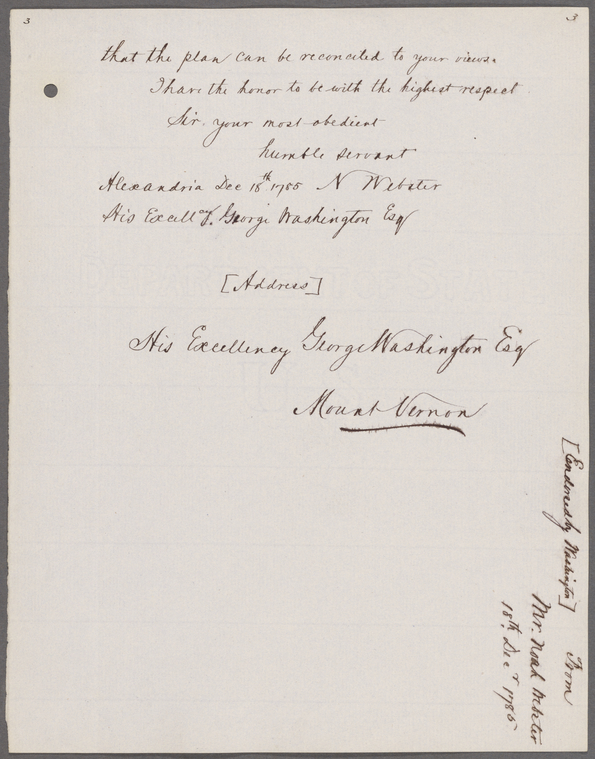 3
3
that the plan can be reconciled to your views.
I have the honor to be with the highest respect
Sir. your most obedient
humble servant
Alexandria Dec 18th 1785 N Webster
His Excellcy. George Washington Esq
[Address]
His Excellency George Washington Esq
Mount Vernon
[Endorsed by Washington] From
Mr. Noah Webster
18th. Decr 1785